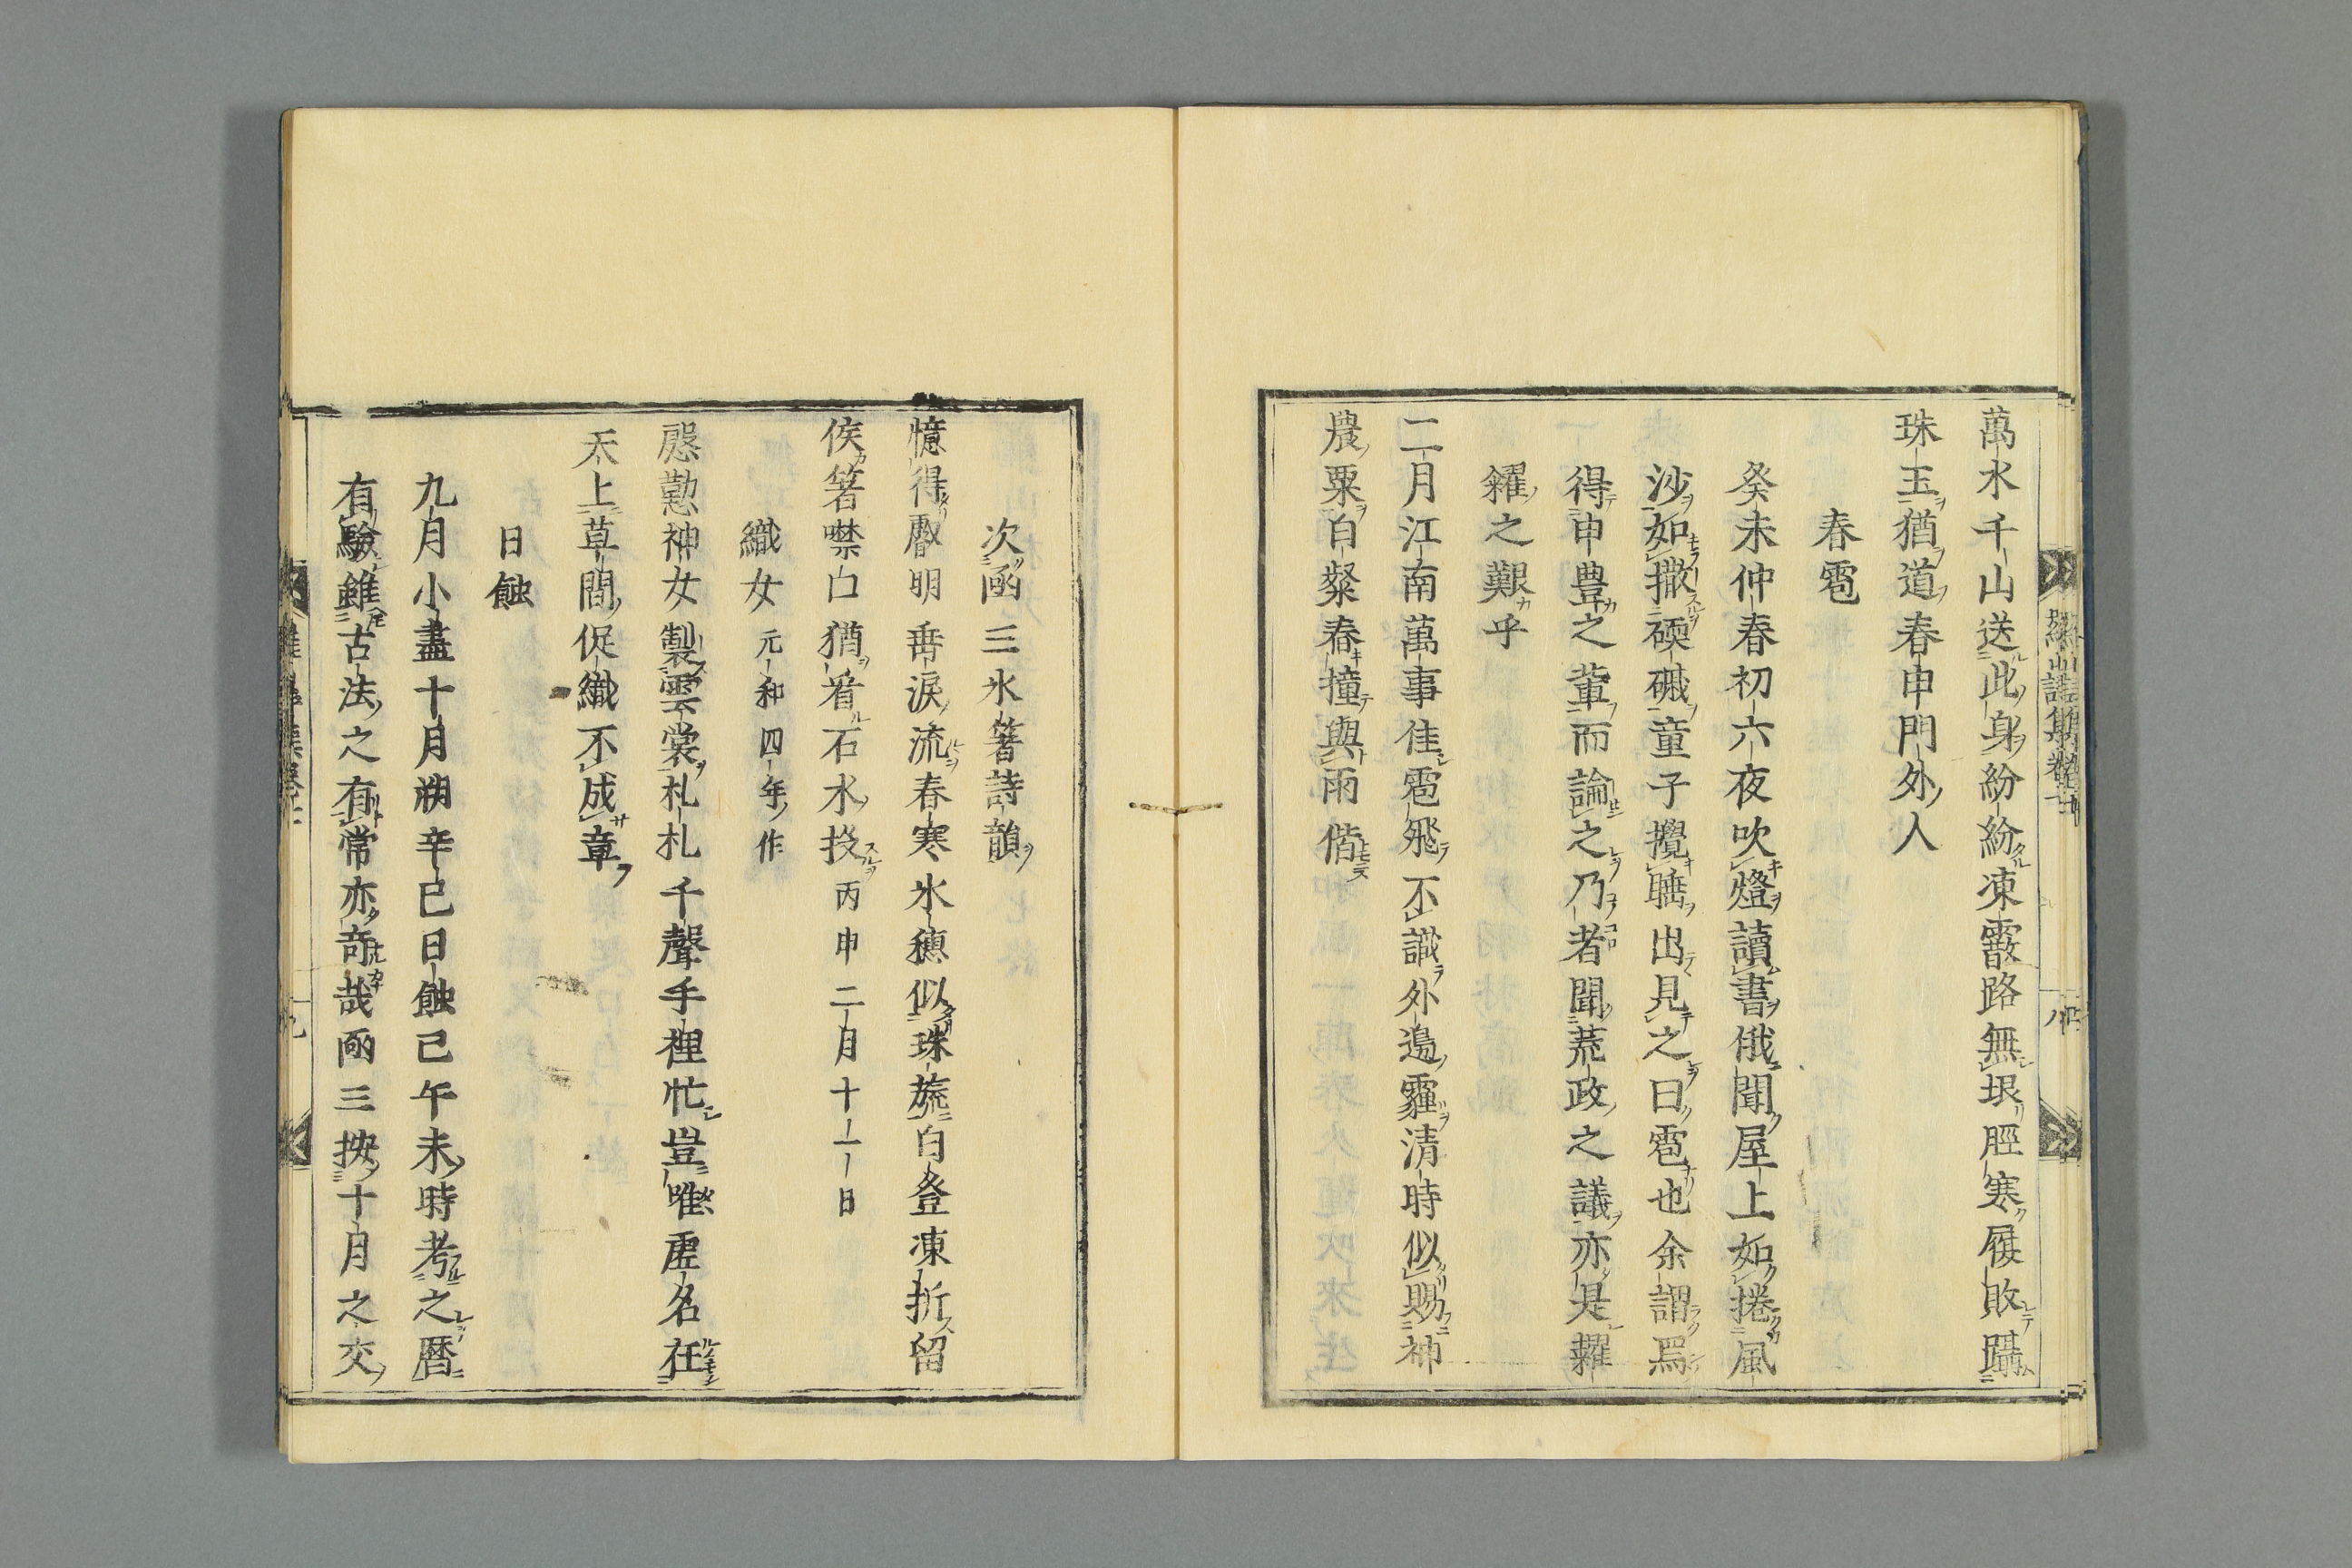 萬水千山送此身紛紛凍霰路無垠脛寒屐敗躡
珠玉猶道春申門外人
春雹
癸未仲春初六夜吹燈讀書俄聞屋上如捲風
沙如撒碝磩童子攪睡出見之曰雹也余謂焉
得申豊之輩而論之乃者聞荒政之議亦是糶
糴之艱乎
二月江南萬事佳雹飛不識外邊霾清時似賜神
農粟白粲舂撞與雨偕
次凾三氷箸詩韻
憶得厭明垂淚流春寒氷穗似珠旒白登凍折留
侯箸噤口猶看石水投 丙申二月十一日
織女 元和四年作
慇懃神女製雲裳札札千聲手裡忙豈唯虛名在
天上草間促織不成章
日蝕
九月小盡十月朔辛巳日蝕已午未時考之曆
有驗雖古法之有常亦奇哉凾三按十月之交